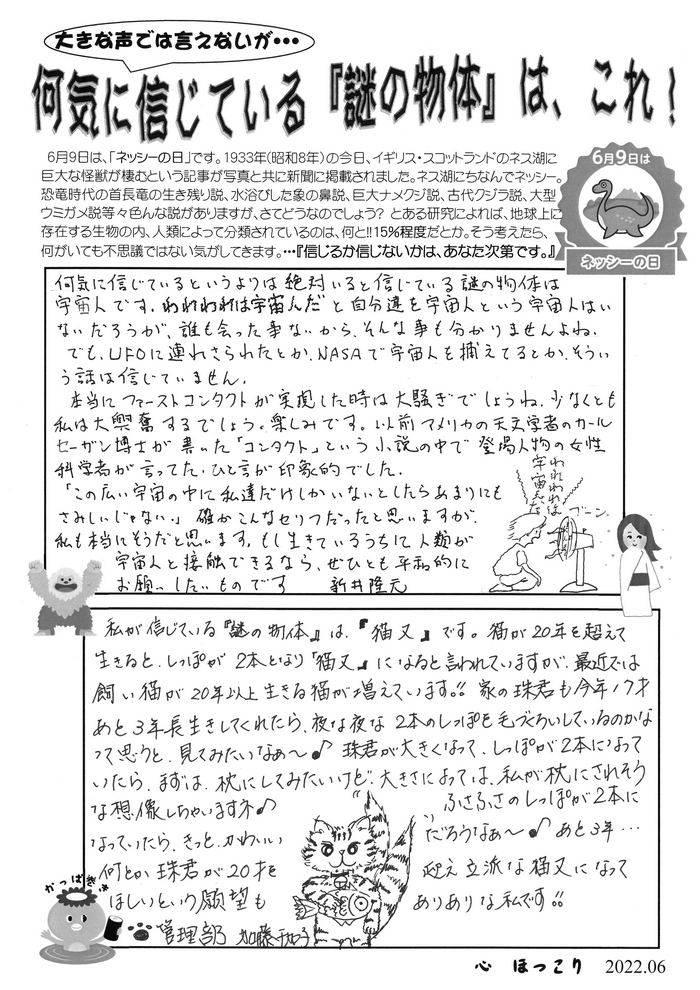 大きな声では言えないが・・・
何気に信じている『謎の物体』は、これ!
6月9日は、「ネッシーの日」です。1933年(昭和8年)の今日、イギリス・スコットランドのネス湖に
巨大な怪獣が棲むという記事が写真と共に新聞に掲載されました。ネス湖にちなんでネッシー。
恐竜時代の首長竜の生き残り説、水浴びした象の鼻説、巨大ナメクジ説、古代クジラ説、大型
ウミガメ説等々色んな説がありますが、さてどうなのでしょう? とある研究によれば、地球上に
存在する生物の内、人類によって分類されているのは、何と!!15%程度だとか。そう考えたら、
何がいても不思議ではない気がしてきます。・・・『信じるか信じないかは、あなた次第です。』
6月9日は
ネッシーの日
何気に信じているというよりは絶対いると信じている謎の物体は
宇宙人です。われわれは宇宙人だと自分達を宇宙人という宇宙人はい
ないだろうが、誰も会った事ないから、そんな事も分かりませんよね。
でも、UFOに連れさられたとか、NASAで宇宙人を捕えてるとか、そうい
う話は信じていません。
本当にファーストコンタクトが実現した時は大騒ぎでしょうね。少なくとも
私は大興奮するでしょう。楽しみです。以前アメリカの天文学者のカール
セーガン博士が書いた「コンタクト」という小説の中で登場人物の女性
科学者が言ってた、ひと言が印象的でした。
「この広い宇宙の中に私達だけしかいないとしたらあまりにも
さみしいじゃない。」確かこんなセリフだったと思いますが、
私も本当にそうだと思います。もし生きているうちに人類が
宇宙人と接触できるなら、ぜひとも平和的に
お願いしたいものです 新井隆元
われわれは
宇宙人だ
ブーン
私が信じている『謎の物体』は、『猫又』です。猫が20年を超えて
生きると、しっぽが2本となり「猫又』になると言われていますが、最近では
飼い猫が20年以上生きる猫が増えています!! 家の珠君も今年17才
あと3年長生きしてくれたら、夜な夜な2本のしっぽを毛づくろいしているのかな
って思うと、見てみたいなぁ～♪ 珠君が大きくなって、しっぽが2本になって
いたら、まずは、枕にしてみたいけど、大きさによっては、私が枕にされそう
な想像しちゃいますネ♪ ふさふさのしっぽが2本に
なっていたら、きっと、かわいい だろうなぁ～♪ あと3年・・・
何とか珠君が20才を 迎え立派な猫又になって
ほしいという願望も ありありな私です!!
かっぱまき
管理部 加藤
心 ほっこり 2022.06